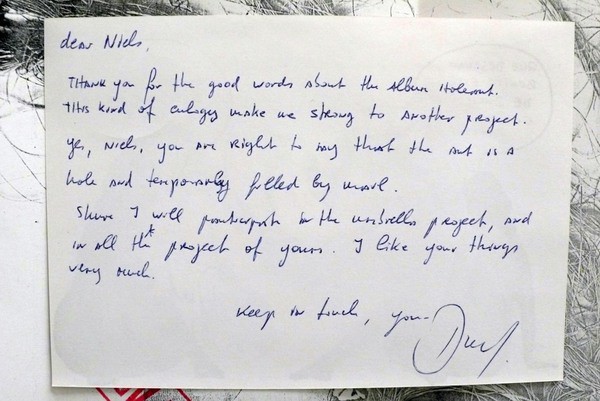 dear Niels,
Thank you for the good words about the Album
This kind of eulogy make me strong to another project.
Yes, Niels, you are right to say that the art is a
hole and temporarly filled by mail.
Shure I will partecipate in the umbrella project, and
in all the project of yours. I like your things
very much.
Keep in touch, your